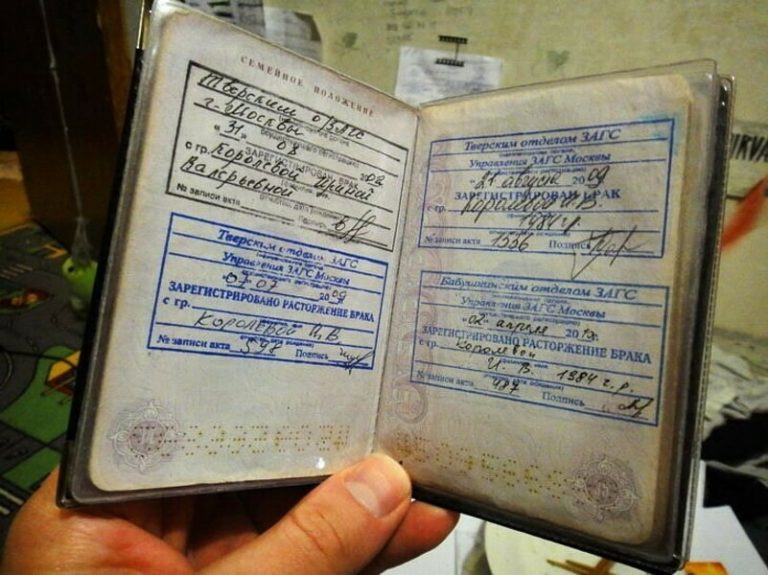 СЕМЕЙНОЕ ПОЛОЖЕНИЕ
Тверским ОЗАГС
г. Москвы
"31" 08
ЗАРЕГИСТРИРОВАН БРАК
с гр. Королевой Ириной
Валерьевной
№ записи акта
Тверским отделом ЗАГС
Управления ЗАГС Москвы
07 2009
ЗАРЕГИСТРИРОВАНО РАСТОРЖЕНИЕ БРАКА
с гр.
Королевой И. В.
№ записи акта 598 Подпись
Тверским отделом ЗАГС
Управления ЗАГС Москвы
"21" августа 2009
ЗАРЕГИСТРИРОВАН БРАК
с гр. Королевой И. В.
1984 г.р.
№ записи акта 1556 Подпись
Бабушкинским отделом ЗАГС
Управления ЗАГС Москвы
"02" апреля 2013
ЗАРЕГИСТРИРОВАНО РАСТОРЖЕНИЕ БРАКА
с гр. Королевой
И. В. 1984 г.р.
№ записи акта 487 Подпись
NIRVA